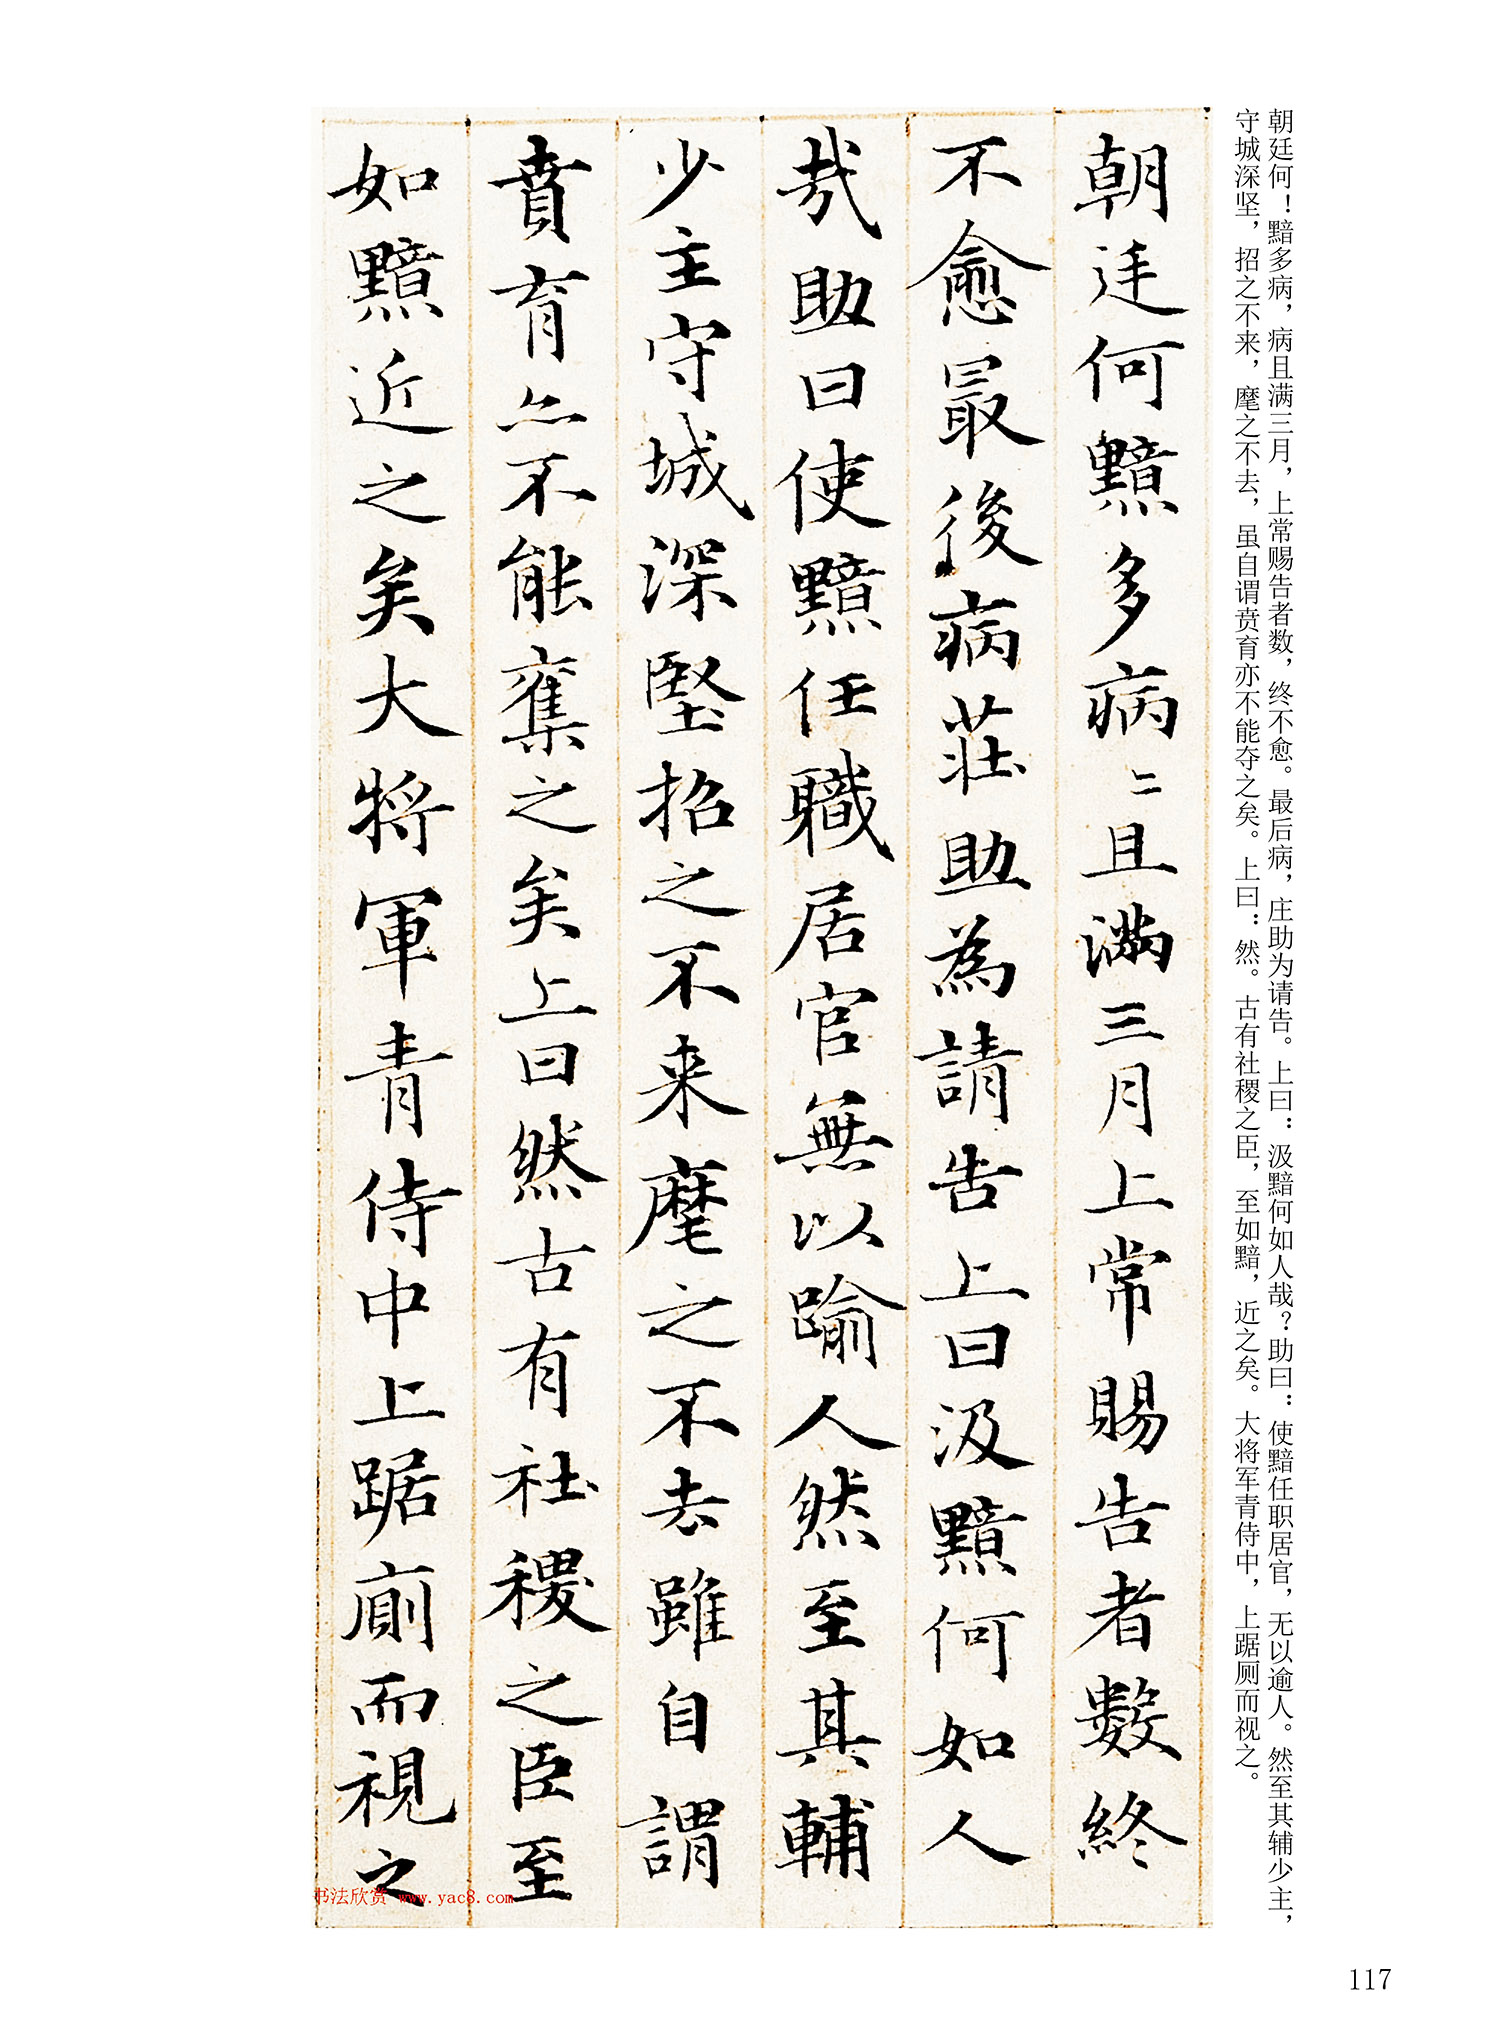 朝廷何！黯多病，病且满三月，上常赐告者数，终不愈。最后病，庄助为请告。上曰：汲黯何如人哉？助曰：使黯任职居官，无以逾人。然至其辅少主，
守城深坚，招之不来，麾之不去，虽自谓贲育亦不能夺之矣。上曰：然。古有社稷之臣，至如黯，近之矣。大将军青侍中，上踞厕而视之。
朝廷何黯多病〻且滿三月上常賜告者數終
不愈最後病莊助為請告上曰汲黯何如人
哉助曰使黯任職居官無以踰人然至其輔
少主守城深堅招之不来麾之不去雖自謂
賁育亦不能奪之矣上曰然古有社稷之臣至
如黯近之矣大将軍青侍中上踞廁而視之
书法欣赏 www.yac8.com
117